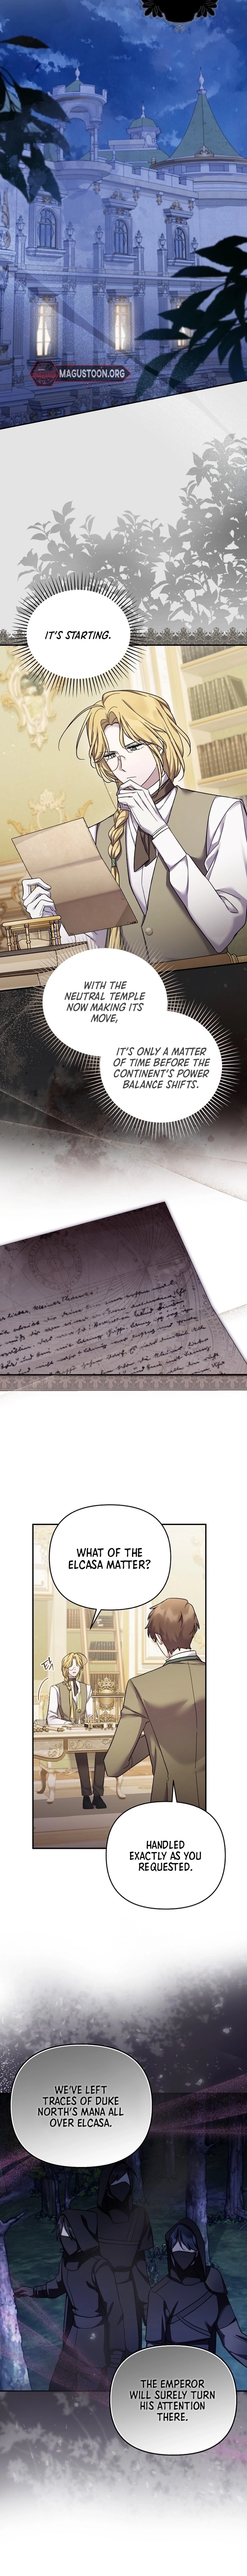 MAGUSTOON.ORG
IT'S STARTING.
WITH THE
NEUTRAL TEMPLE
NOW MAKING ITS
MOVE,
IT'S ONLY A MATTER
OF TIME BEFORE THE
CONTINENT'S POWER
BALANCE SHIFTS.
WHAT OF THE
ELCASA MATTER?
탁
HANDLED
EXACTLY AS YOU
REQUESTED.
WE'VE LEFT
TRACES OF DUKE
NORTH'S MANA ALL
OVER ELCASA.
THE EMPEROR
WILL SURELY TURN
HIS ATTENTION
THERE.